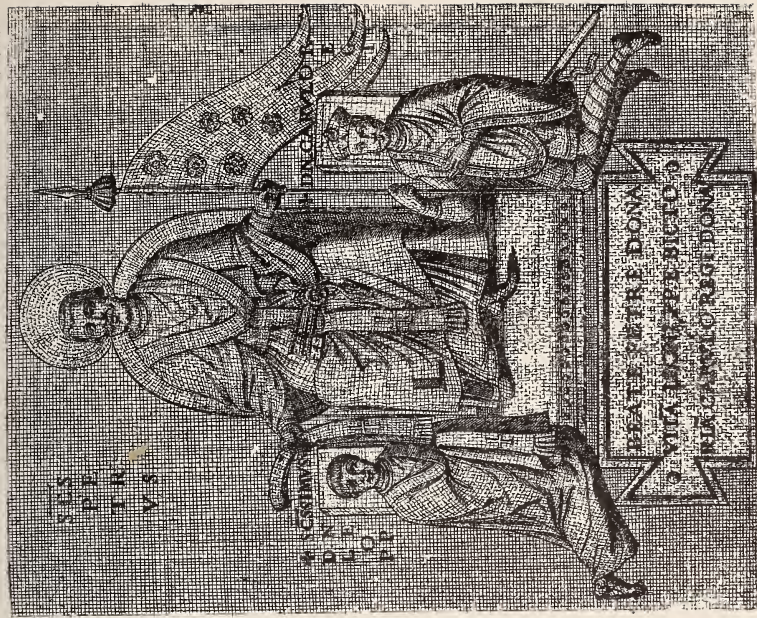 SCS
PE
TR
VS
+ SCSSIMVS
D N
LE
O
PP
+ DN CARVLO R
E
BEATE PETRE DONA
VITA LEONI PP E BICTO
RIA CARVLO REGI DONA